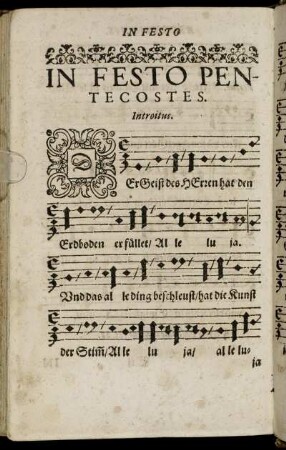 IN FESTO
IN FESTO PEN-
TECOSTES.
Introitus.
DEr Geist des HErren hat den
Erdboden erfüllet/ Al le lu ja.
Vnd das al le ding beschleust/ hat die Kunst
der Stim̃/ Al le lu ja/ al le lu-
ja